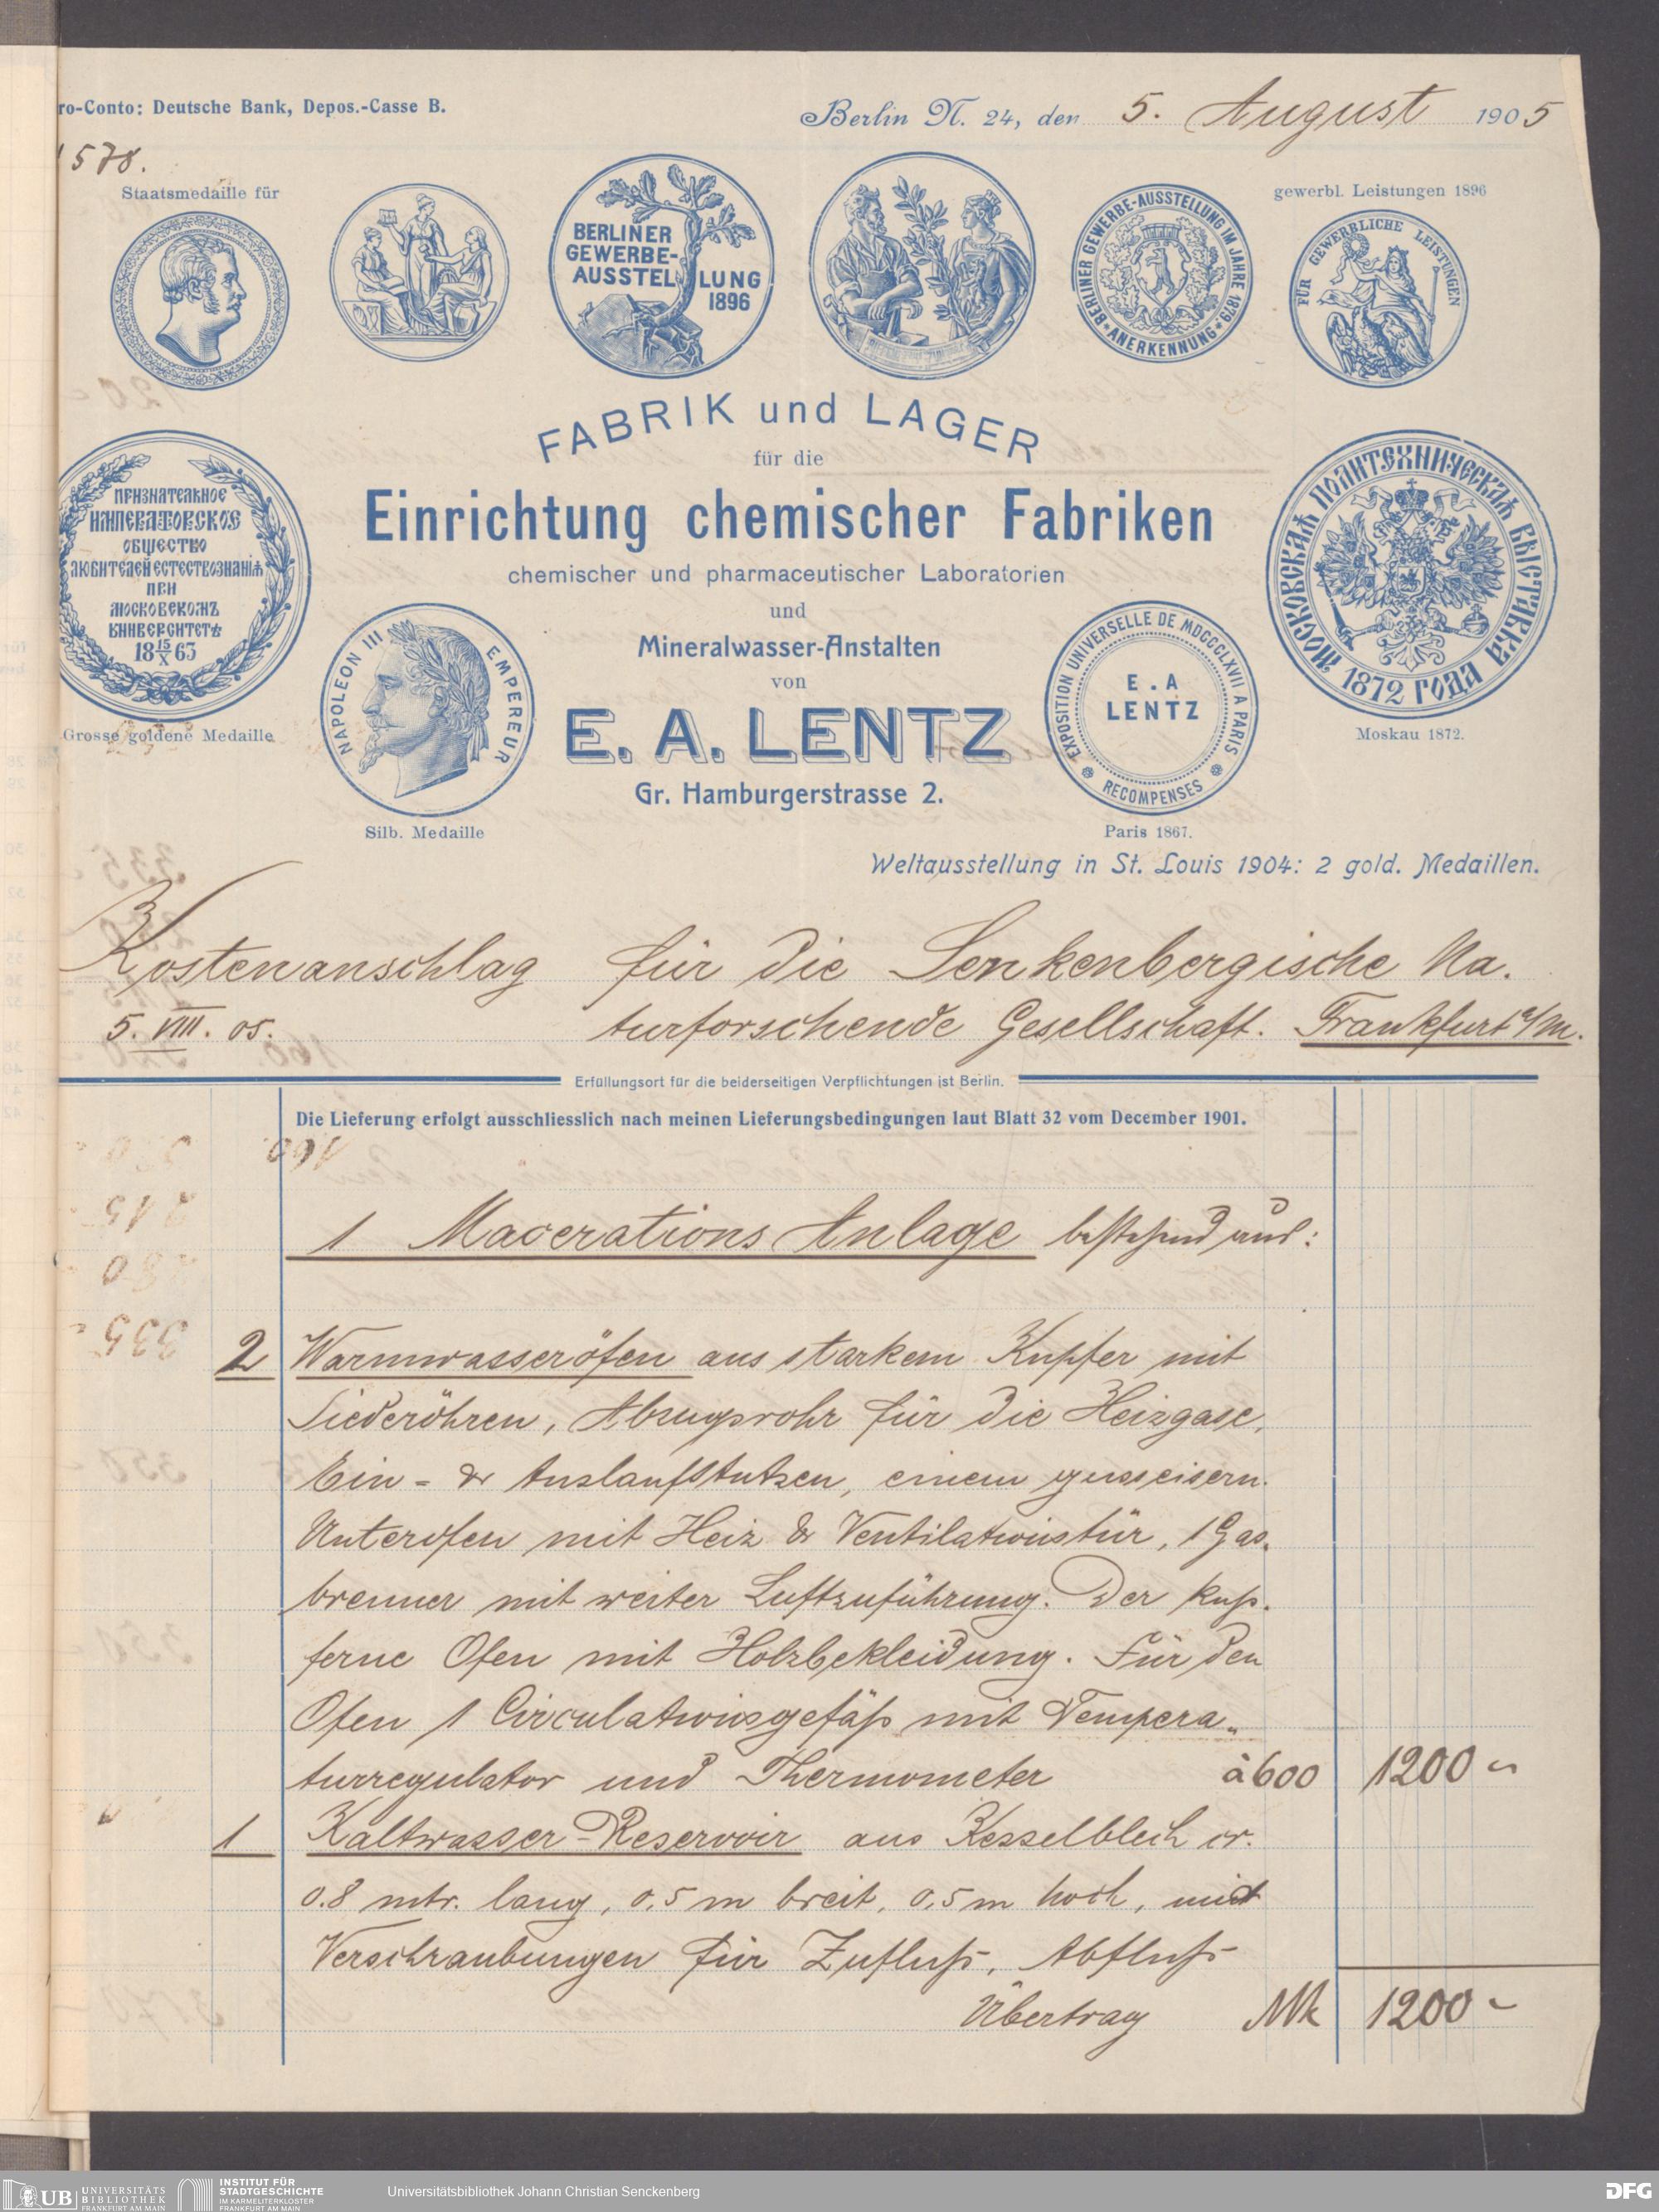 ro-Conto: Deutsche Bank, Depos.-Casse B.
Berlin N. 24, den 5. August 1905
1578.
Staatsmedaille für
gewerbl. Leistungen 1896
BERLINER
GEWERBE-
AUSSTELLUNG
1896
BERLINER GEWERBE-AUSSTELLUNG IM JAHRE 1879
ANERKENNUNG
FÜR GEWERBLICHE LEISTUNGEN
FABRIK und LAGER
für die
Einrichtung chemischer Fabriken
chemischer und pharmaceutischer Laboratorien
und
Mineralwasser-Anstalten
von
E. A. LENTZ
Gr. Hamburgerstrasse 2.
ПРИЗНАТЕЛЬНОЕ
ИМПЕРАТОРСКОЕ
ОБЩЕСТВО
ЛЮБИТЕЛЕЙ ЕСТЕСТВОЗНАНІЯ
ПРИ
МОСКОВСКОМЪ
УНИВЕРСИТЕТѢ
18 15/X 63
Grosse goldene Medaille
NAPOLEON III EMPEREUR
Silb. Medaille
EXPOSITION UNIVERSELLE DE MDCCCLXVII A PARIS
E. A
LENTZ
RECOMPENSES
Paris 1867.
МОСКОВСКАЯ ПОЛИТЕХНИЧЕСКАЯ ВЫСТАВКА
1872 ГОДА
Moskau 1872.
Weltausstellung in St. Louis 1904: 2 gold. Medaillen.
Kostenanschlag für die Senkenbergische Na.
5. VIII. 05. turforschende Gesellschaft. Frankfurt a/m.
Erfüllungsort für die beiderseitigen Verpflichtungen ist Berlin.
Die Lieferung erfolgt ausschliesslich nach meinen Lieferungsbedingungen laut Blatt 32 vom December 1901.
1 Macerations Anlage bestehend aus:
2 Warmwasseröfen aus starkem Kupfer mit
Siederöhren, Abzugsrohr für die Heizgase,
Ein- & Auslaufstutzen, einem gusseisern.
Unterofen mit Heiz & Ventilationstür, 1 Gas-
brenner mit weiter Luftzuführung. Der kup-
ferne Ofen mit Holzbekleidung. Für den
Ofen 1 Circulationsgefäß mit Tempera-
turregulator und Thermometer à 600 1200 -
1 Kaltwasser-Reservoir aus Kesselblech cr.
0.8 mtr. lang, 0,5 m breit, 0,5 m hoch, mit
Verschraubungen für Zufluß, Abfluß
Übertrag Mk 1200 -
UB UNIVERSITÄTS
BIBLIOTHEK
FRANKFURT AM MAIN
INSTITUT FÜR
STADTGESCHICHTE
IM KARMELITERKLOSTER
FRANKFURT AM MAIN
Universitätsbibliothek Johann Christian Senckenberg
DFG